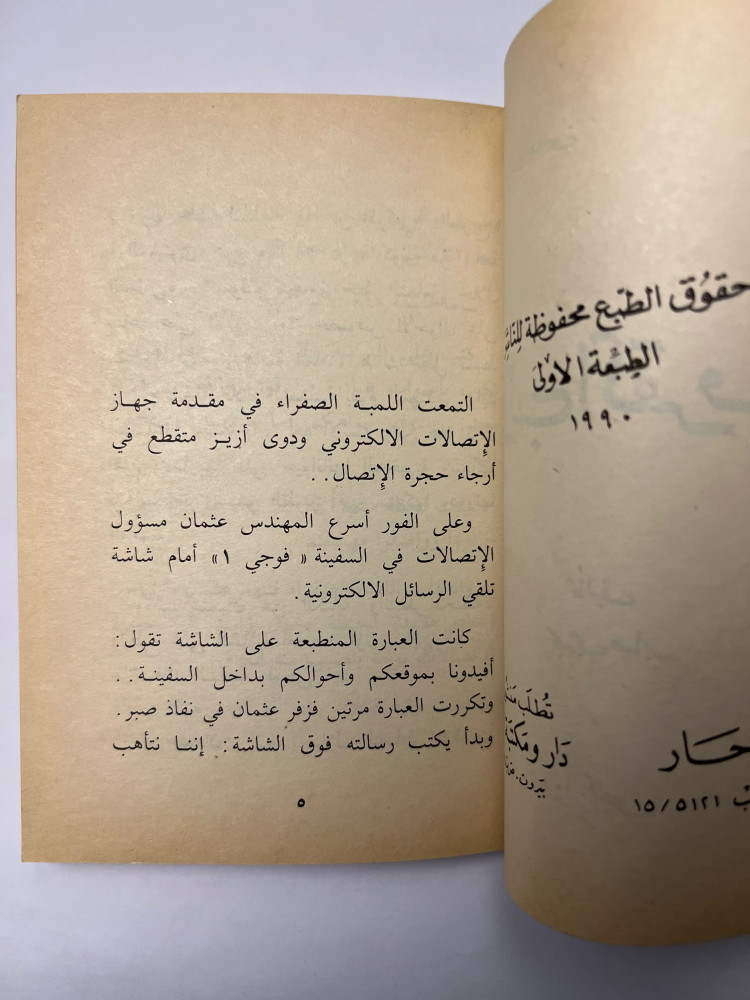 حقوق الطبع محفوظة
الطبعة الأولى
١٩٩٠
تُطلَب
دَار وَمَكتبَة
بَيروت
١٥/٥١٢١
التمعت اللمبة الصفراء في مقدمة جهاز
الإتصالات الالكتروني ودوى أزيز متقطع في
أرجاء حجرة الإتصال..
وعلى الفور أسرع المهندس عثمان مسؤول
الإتصالات في السفينة « فوجي ١ » أمام شاشة
تلقي الرسائل الالكترونية.
كانت العبارة المنطبعة على الشاشة تقول:
أفيدونا بموقعكم وأحوالكم بداخل السفينة..
وتكررت العبارة مرتين فزفر عثمان في نفاذ صبر.
وبدأ يكتب رسالته فوق الشاشة: إننا نتأهب
٥